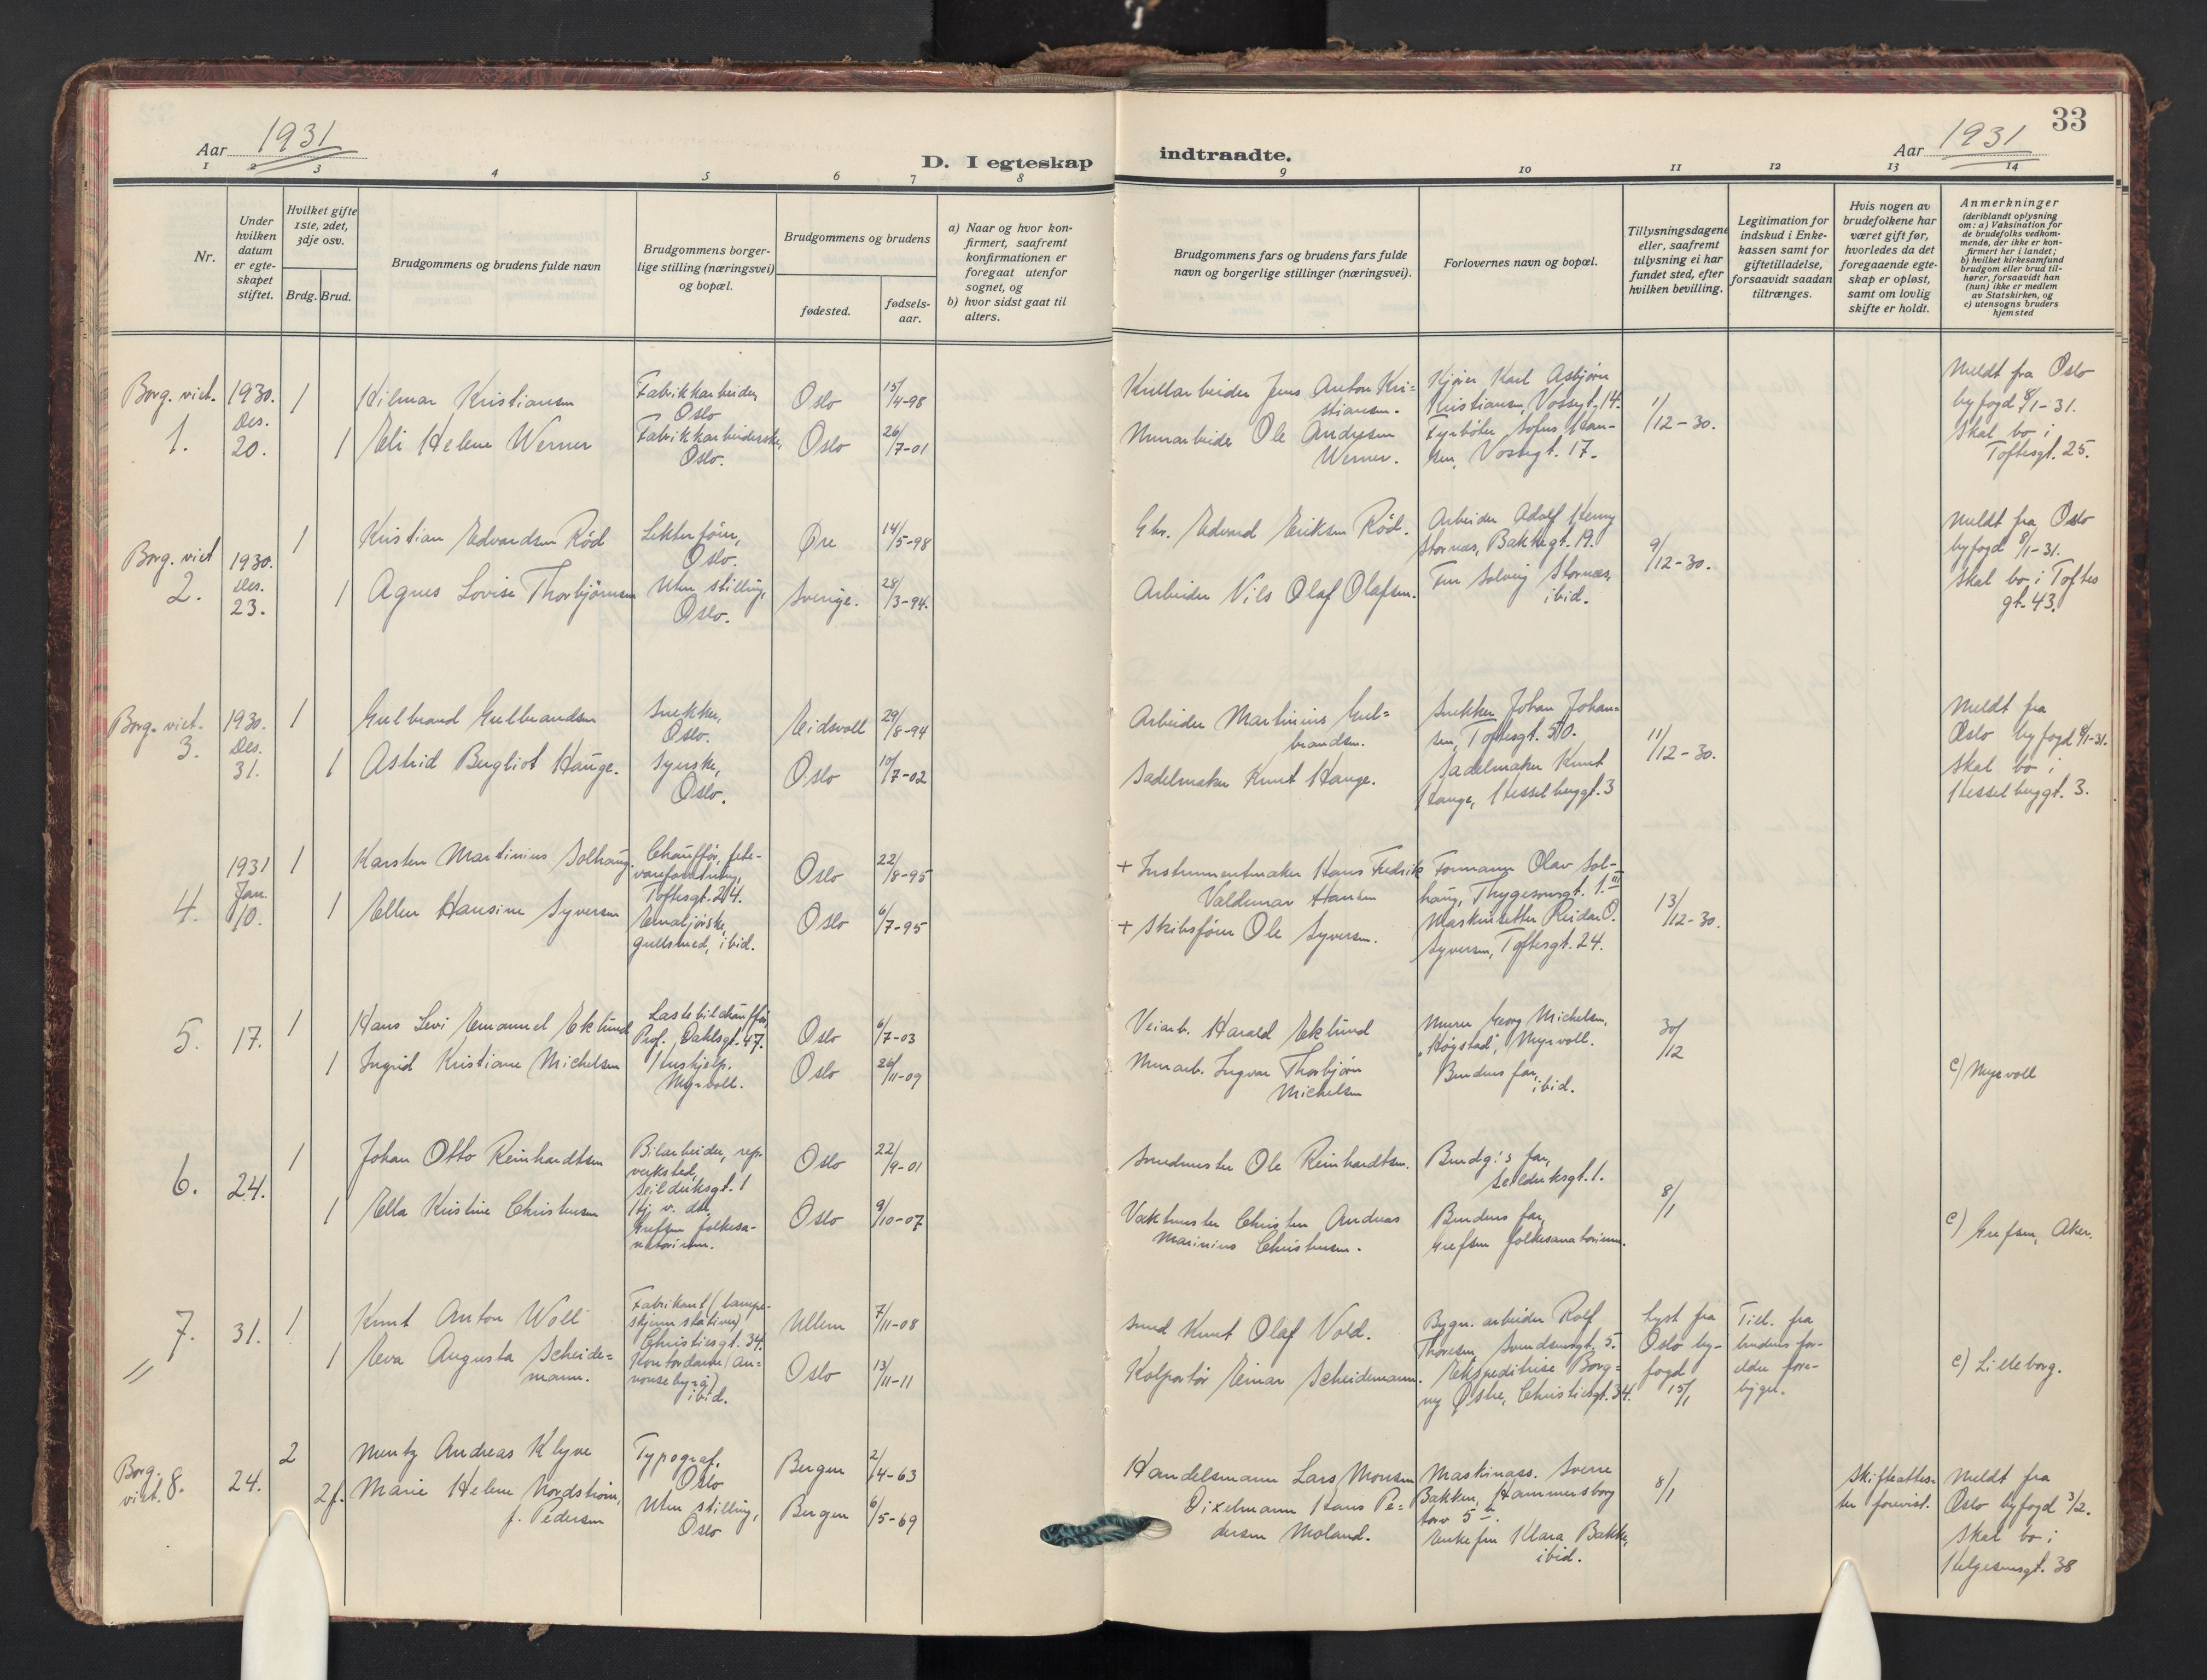 33
Aar 1931
D. I egteskap indtraadte.
Aar 1931
1 2 3 4 5 6 7 8 9 10 11 12 13 14
Nr.
Under hvilken datum er egteskapet stiftet.
Hvilket gifte 1ste, 2det, 3dje osv.
Brdg. Brud.
Brudgommens og brudens fulde navn
Brudgommens borgerlige stilling (næringsvei) og bopæl.
Brudgommens og brudens
fødested.
fødselsaar.
a) Naar og hvor konfirmert, saafremt konfirmationen er foregaat utenfor sognet, og
b) hvor sidst gaat til alters.
Brudgommens fars og brudens fars fulde navn og borgerlige stillinger (næringsvei).
Forlovernes navn og bopæl.
Tillysningsdagene eller, saafremt tillysning ei har fundet sted, efter hvilken bevilling.
Legitimation for indskud i Enkekassen samt for giftetilladelse, forsaavidt saadan tiltrænges.
Hvis nogen av brudefolkene har været gift før, hvorledes da det foregaaende egteskap er opløst, samt om lovlig skifte er holdt.
Anmerkninger
(deriblandt oplysning om: a) Vaksination for de brudefolks vedkommende, der ikke er konfirmert her i landet; b) hvilket kirkesamfund brudgom eller brud tilhører, forsaavidt han (hun) ikke er medlem av Statskirken, og c) utensogns bruders hjemsted
Borg. viet. 1.
1930. Des. 20.
1
Hilmar Kristiansen
Fabrikkarbeider, Oslo
Oslo
15/4-98
1
Eli Helene Werner
Fabrikkarbeiderske, Oslo.
Oslo
26/7-01
Kullarbeider Jens Anton Kristiansen.
Murarbeider Ole Andresen Werner.
Kjører Karl Asbjørn Kristiansen, Vossgt. 14.
Fyrbøter Sofus Hansen, Vossegt. 17.
1/12-30.
Meldt fra Oslo
byfogd 8/1-31.
Skal bo i
Toftesgt. 25.
Borg. viet 2.
1930. Des. 23.
1
Kristian Edvardsen Rød
Lekterfører, Oslo.
Øre
14/5-98
1
Agnes Lovise Thorbjørnsen
Uten stilling, Oslo.
Sverige.
28/3-94.
Gbr. Edvard Eriksen Rød.
Arbeider Nils Olaf Olafsen.
Arbeider Adolf Henry Stornæs, Bakkegt. 19.
Fru Solveig Stornæs, ibid.
9/12-30.
Meldt fra Oslo
byfogd 8/1-31.
Skal bo i Toftes
gt. 43.
Borg. viet. 3.
1930. Des. 31.
1
Gulbrand Gulbrandsen
Snekker, Oslo.
Eidsvoll
29/8-94
1
Astrid Bergliot Hauge.
Syerske, Oslo.
Oslo
10/7-02
Arbeider Martinius Gulbrandsen.
Sadelmaker Knut Hauge.
Snekker Johan Johansen, Toftesgt. 50.
Sadelmaker Knut Hauge, Hesselberggt. 3
11/12-30.
Meldt fra
Oslo byfogd 8/1-31.
Skal bo i
Hesselberggt. 3.
4.
1931 Jan. 10.
1
Karsten Martinius Solhaug.
Chauffør, fetevareforretning, Toftesgt. 24.
Oslo
22/8-95
1
Ellen Hansine Syversen
Emaljørske, gullsmed, ibid.
Oslo
6/7-95
+ Instrumentmaker Hans Fredrik Valdemar Hansen
+ Skibsfører Ole Syversen.
Formann Olav Solhaug, Thygesonsgt. 1. III
Maskinsetter Reidar O. Syversen, Toftesgt. 24.
13/12-30.
5.
17.
1
Hans Levi Emanuel Eklund
Lastebilchauffør, Prof. Dahlsgt. 47.
Oslo
6/7-03
1
Ingrid Kristiane Michelsen
Hushjelp. Myrvoll.
Oslo
26/11-09
Veiarb. Harald Eklund
Murarb. Ingvar Thorbjørn Michelsen
Murer Georg Michelsen, "Høgstad", Myrvoll.
Brudens far, ibid.
30/12
c) Myrvoll
6.
24.
1
Johan Otto Reinhardtsen
Bilarbeider, rep. verksted, Seilduksgt. 1
Oslo
22/9-01
1
Ella Kristine Christensen
Hj. v. do., Grefsen folkesanatorium.
Oslo
9/10-07
Smedmester Ole Reinhardtsen.
Vaktmester Christen Andreas Marinius Christensen.
Brudg.'s far, Seilduksgt. 1.
Brudens far, Grefsen folkesanatorium.
8/1
c) Grefsen, Aker.
7.
31.
1
Knut Anton Woll
Fabrikant (lampeskjerm stativer) Christiesgt. 34.
Ullern
7/11-08
1
Eva Augusta Scheidemann.
Kontordame (annonsebyrå) ibid.
Oslo
13/11-11
Smed Knut Olaf Vold.
Kolportør Einar Scheidemann.
Bygn. arbeider Rolf Thoresen, Smedsensgt. 5.
Ekspeditrise Borgny Østre, Christiesgt. 34.
Lyst fra Oslo byfogd 15/1
Till. fra brudens foreldre forebygn.
c) Lilleborg.
Borg. viet. 8.
24.
2
Mentz Andreas Klyve
Typograf, Oslo
Bergen
2/4-63
2 f.
Marie Helene Nordstrøm, f. Pedersen
Uten stilling, Oslo
Bergen
6/5-69
Handelsmann Lars Monsen
Dixelmann Hans Pedersen Moland.
Maskinass. Sverre Bakken, Hammersborg torv 5 b.
Enkefru Klara Bakke, ibid.
8/1
Skifteattester forevist.
Meldt fra
Oslo byfogd 3/2.
Skal bo i
Helgesensgt. 38